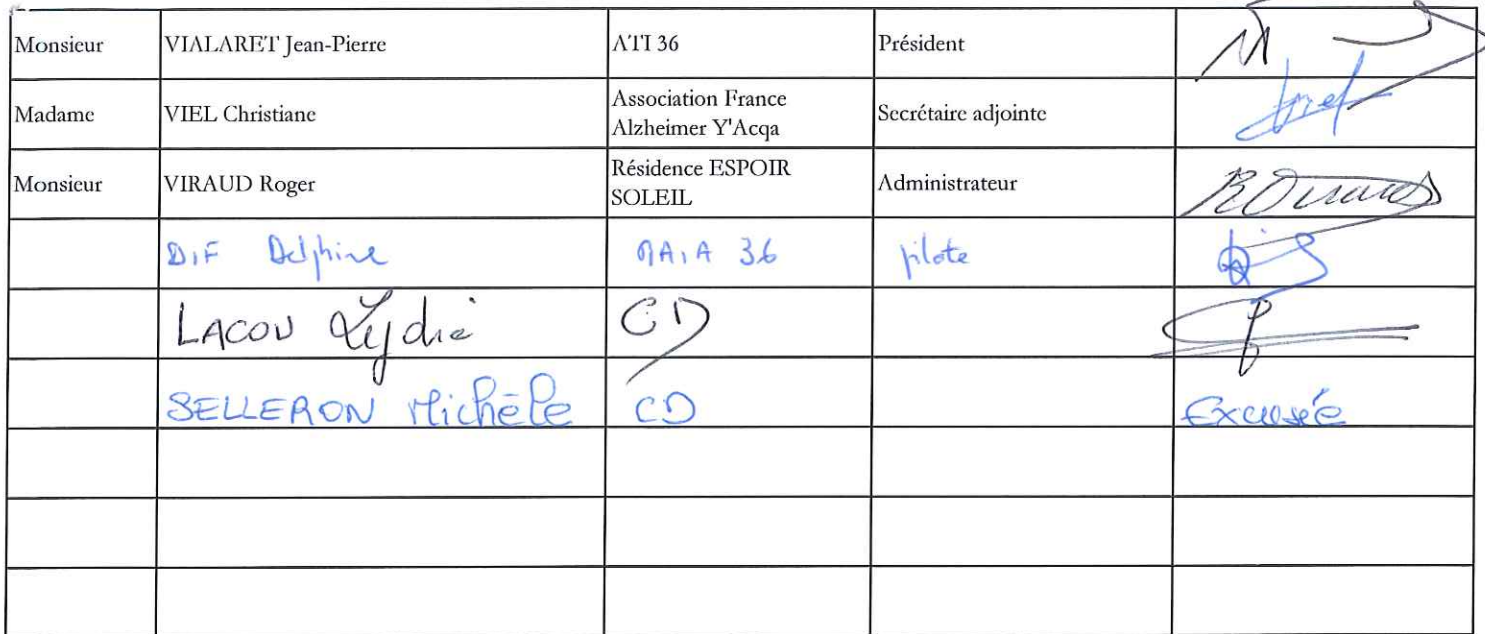 Monsieur VIALARET Jean-Pierre ATI 36 Président
Madame VIEL Christiane Association France Alzheimer Y'Acqa Secrétaire adjointe
Monsieur VIRAUD Roger Résidence ESPOIR SOLEIL Administrateur
DIF Delphine MAIA 36 pilote
LACOU Lydie CD
SELLERON Michèle CD Excusée